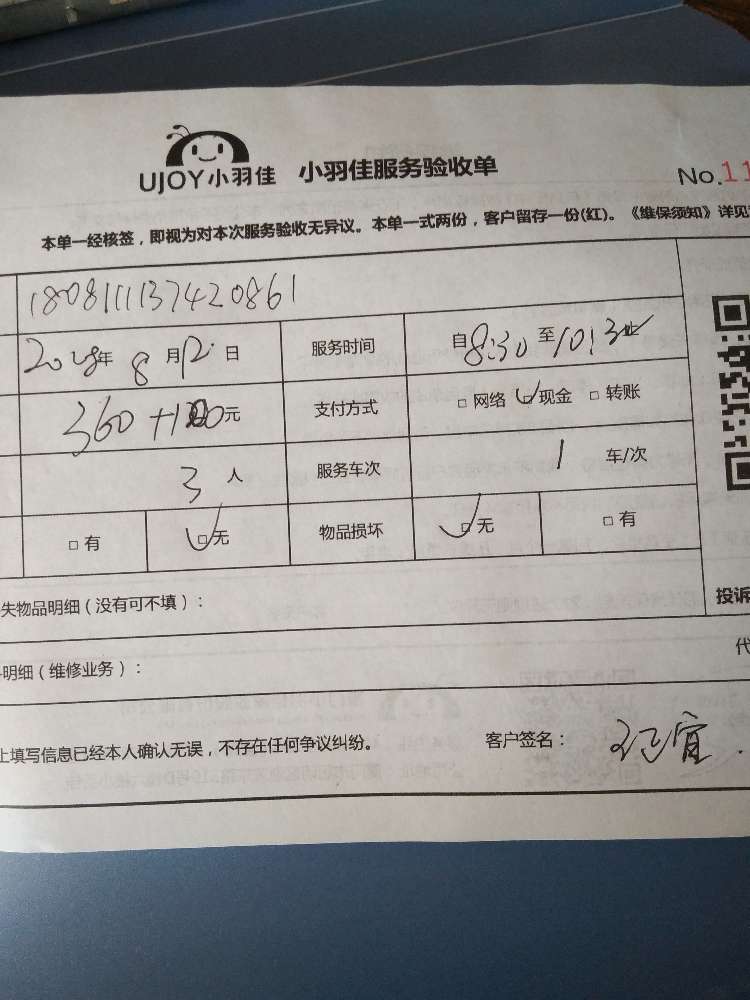 UJOY小羽佳 小羽佳服务验收单
No.11
本单一经核签，即视为对本次服务验收无异议。本单一式两份，客户留存一份(红)。《维保须知》详见
180811137420861
2018年8月12日 服务时间 自8:30至10:3
360+100元 支付方式 □网络 □现金 □转账
3人 服务车次 1 车/次
□有 □无 物品损坏 □无 □有
失物品明细（没有可不填）：
投诉
明细（维修业务）：
代
上填写信息已经本人确认无误，不存在任何争议纠纷。 客户签名：